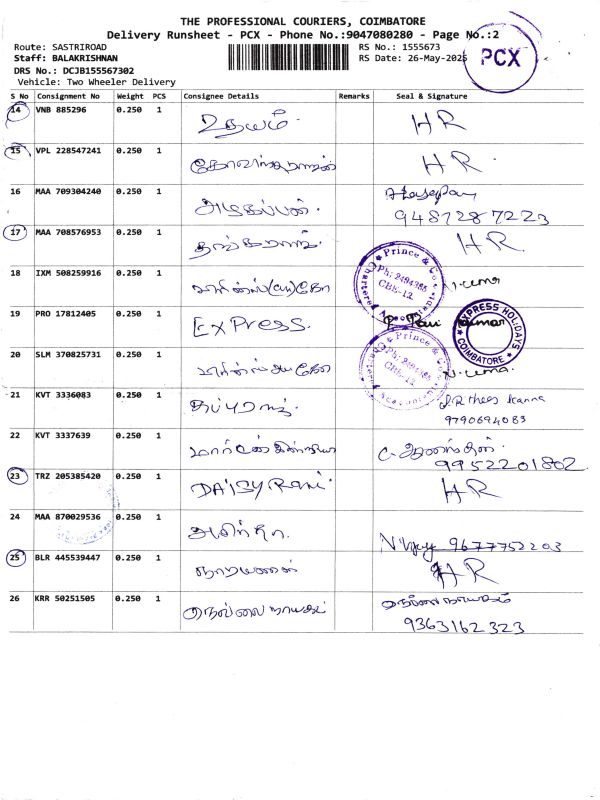 THE PROFESSIONAL COURIERS, COIMBATORE
Delivery Runsheet - PCX - Phone No.:9047080280 - Page No.:2
Route: SASTRIROAD RS No.: 1555673
Staff: BALAKRISHNAN RS Date: 26-May-2025
PCX
DRS No.: DCJB155567302
Vehicle: Two Wheeler Delivery
S No Consignment No Weight PCS Consignee Details Remarks Seal & Signature
14 VNB 885296 0.250 1 உதயம். HR
15 VPL 228547241 0.250 1 HR.
16 MAA 709304240 0.250 1 அழகப்பன். 9487287223
17 MAA 708576953 0.250 1 தங்கராஜ். HR
18 IXM 508259916 0.250 1 N.uma
Prince & Co.
Ph: 2494365
CBE-12.
Chartered Accountants
19 PRO 17812405 0.250 1 EXPRESS. Kumar
EXPRESS HOLIDAYS
COIMBATORE
20 SLM 370825731 0.250 1 N.uma.
Prince & Co.
Ph: 2494365
CBE-12.
Chartered Accountants
21 KVT 3336083 0.250 1 சுப்புராஜ். Kanna
9790694083
22 KVT 3337639 0.250 1 C.
9952201802
23 TRZ 205385420 0.250 1 DAISY Rani. HR
24 MAA 870029536 0.250 1 N Vijay 9677752203
25 BLR 445539447 0.250 1 நாராயணன் HR
26 KRR 50251505 0.250 1 நெல்லை நாயகம் நெல்லை நாயகம்
9363162323